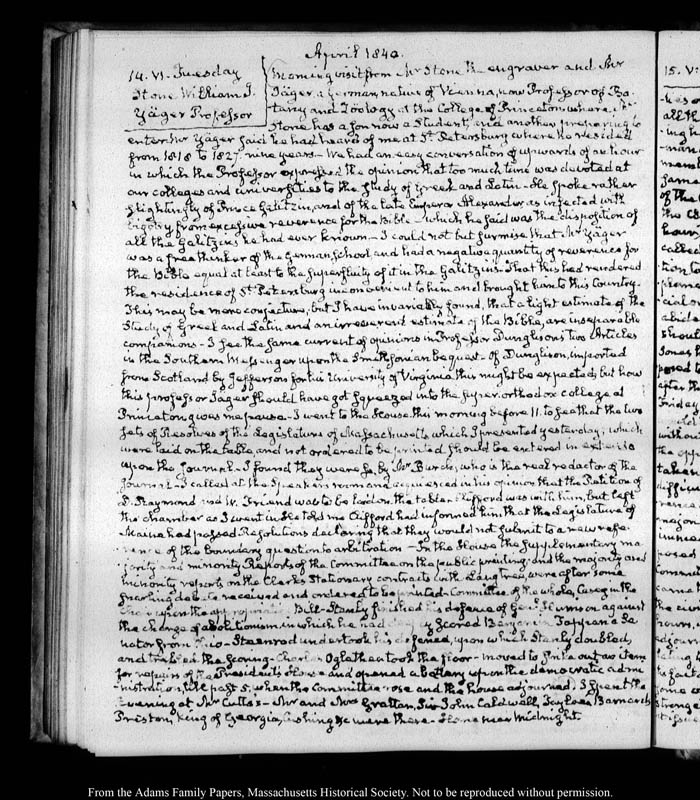 April 1840.
14. VI. Tuesday
Stone William J.
Yäger Professor
Morning visit from Mr Stone the engraver and Mr
Jäger a german native of Vienna, now Professor of Bo-
tany and Zoology at the College of Princeton where Mr
Stone has a son now a Student, and another preparing to
enter. Mr Yäger said he had heard of me at St. Petersburg where he resided
from 1818 to 1827. nine years— We had an easy conversation of upwards of an hour
in which the Professor expressed the opinion that too much time was devoted at
our colleges and universities to the study of Greek and Latin— He spoke rather
slightingly of Prince Galitzin, and of the late Emperor Alexander as infected with
bigotry from excessive reverence for the Bible— which he said was the disposition of
all the Galitzins he had ever known— I could not but surmise that Mr Yäger
was a free thinker of the German School, and had a negative quantity of reverence for
the Bible equal at least to the superfluity of it in the Galitzins. That this had rendered
the residence of St. Petersburg inconvenient to him and brought him to this Country—
This may be mere conjecture, but I have invariably found, that a light estimate of the
study of Greek and Latin and an irreverent estimate of the Bible, are inseparable
companions— I see the same current of opinions in Professor Dunglison's two Articles
in the Southern Messenger upon the Smithsonian bequest— Of Dunglison, imported
from Scotland by Jefferson for his University of Virginia this might be expected; but how
this professor Jäger should have got squeezed into the super orthodox college at
Princeton gives me pause— I went to the House this morning before 11. to see that the two
sets of Resolves of the Legislature of Massachusetts which I presented yesterday, which
were laid on the table, and not ordered to be printed should be entered in extenso
upon the Journal— I found they were so, by Mr Burch, who is the real redactor of the
Journal— I called at the Speaker's room and acquiesced in his opinion that the Petition of
D. Raymond and W. Friend was to be laid on the table. Clifford was with him, but left
the chamber as I went in. He told me Clifford had informed him that the Legislature of
Maine had passed Resolutions declaring that they would not submit to a new refe-
rence of the boundary question to arbitration— In the House the supplementary ma-
jority and minority Reports of the Committee on the public printing; and the majority and
minority reports on the Clerk's Stationary contracts with Langtree, were after some
snarling debate received and ordered to be printed. Committee of the whole, Casey in the
Chair upon the appropriation Bill— Stanly finished his defence of Genl. Harrison against
the charge of abolitionism, in which he had scored Benjamin Tappan a Se-
nator from Ohio— Steenrod undertook his defence, upon which Stanly doubled,
and the scoring— Charles Ogle then took the floor— moved to strike out an item
for repairs of the President's House and opened a battery upon the democratic admi-
nistration, till past 5. when the Committee rose and the house adjourned. I spent the
Evening at Mr Cutts's— Mr and Mrs Grattan, Sir John Caldwell, Tayloe, Barnard,
Preston, King of Georgia, Cushing &c were there— Home near Midnight.
15. V.
From the Adams Family Papers, Massachusetts Historical Society. Not to be reproduced without permission.